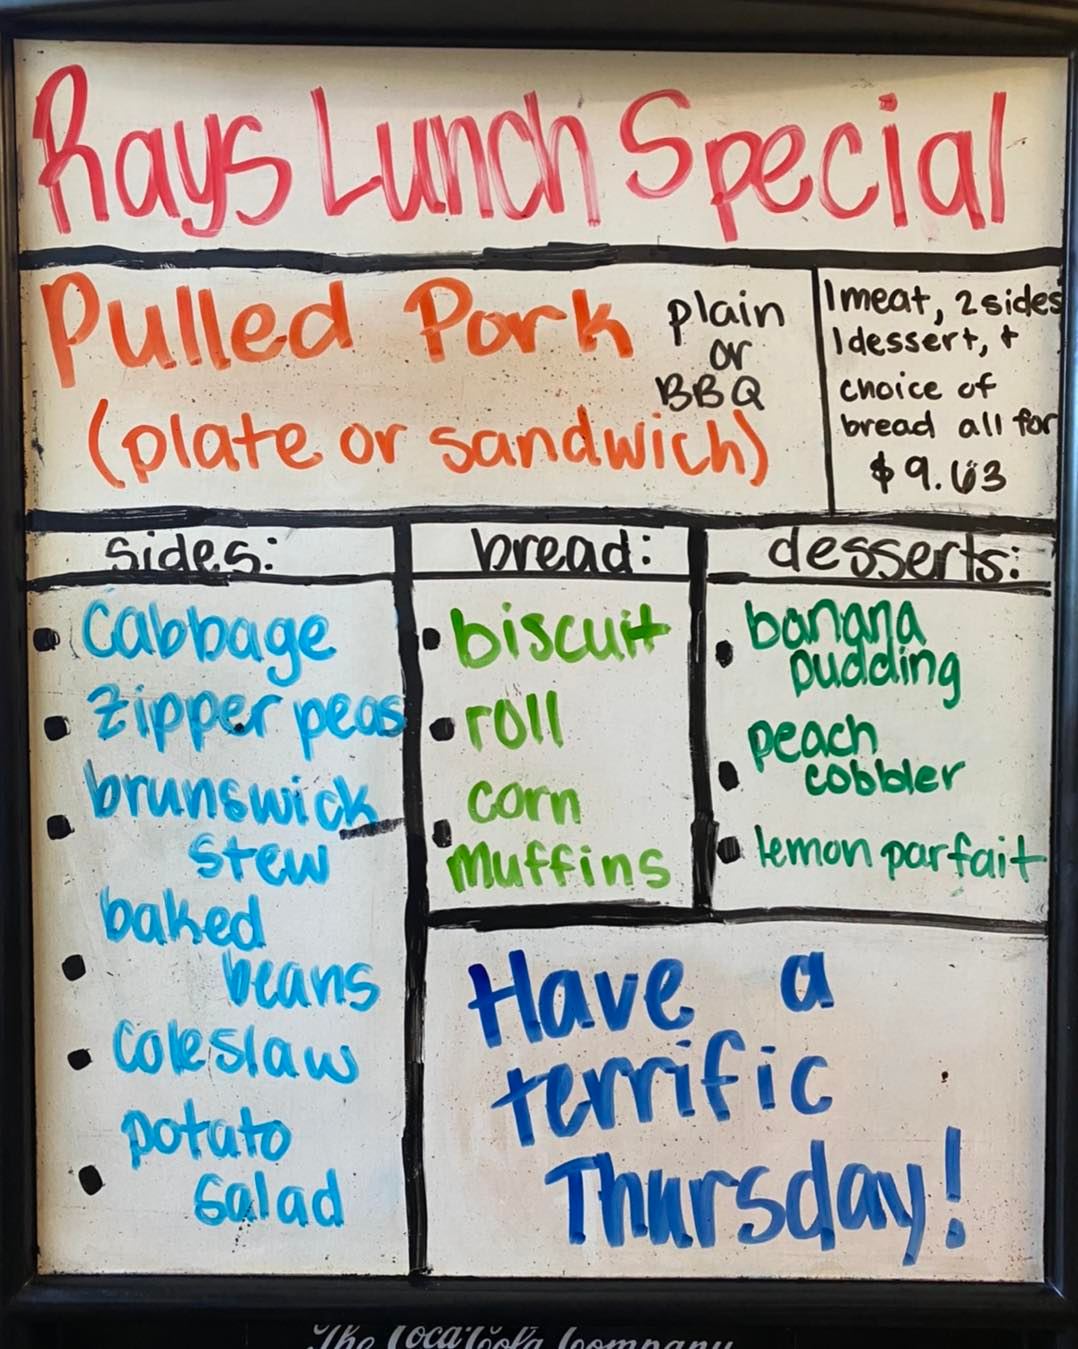 Rays Lunch Special
Pulled Pork
plain
or
BBQ
(plate or sandwich)
1 meat, 2 sides
1 dessert, +
choice of
bread all for
$9.63
sides:
Cabbage
zipper peas
brunswick
stew
baked
beans
Coleslaw
potato
salad
bread:
biscuit
roll
corn
muffins
desserts:
banana
pudding
peach
cobbler
lemon parfait
Have a
terrific
Thursday!
The Coca-Cola Company